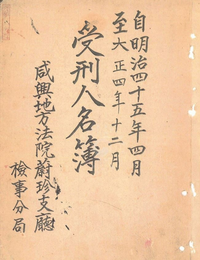 自明治四十五年四月
至大正四年十二月
受刑人名簿
咸興地方法院蔚珍支廳
檢事分局